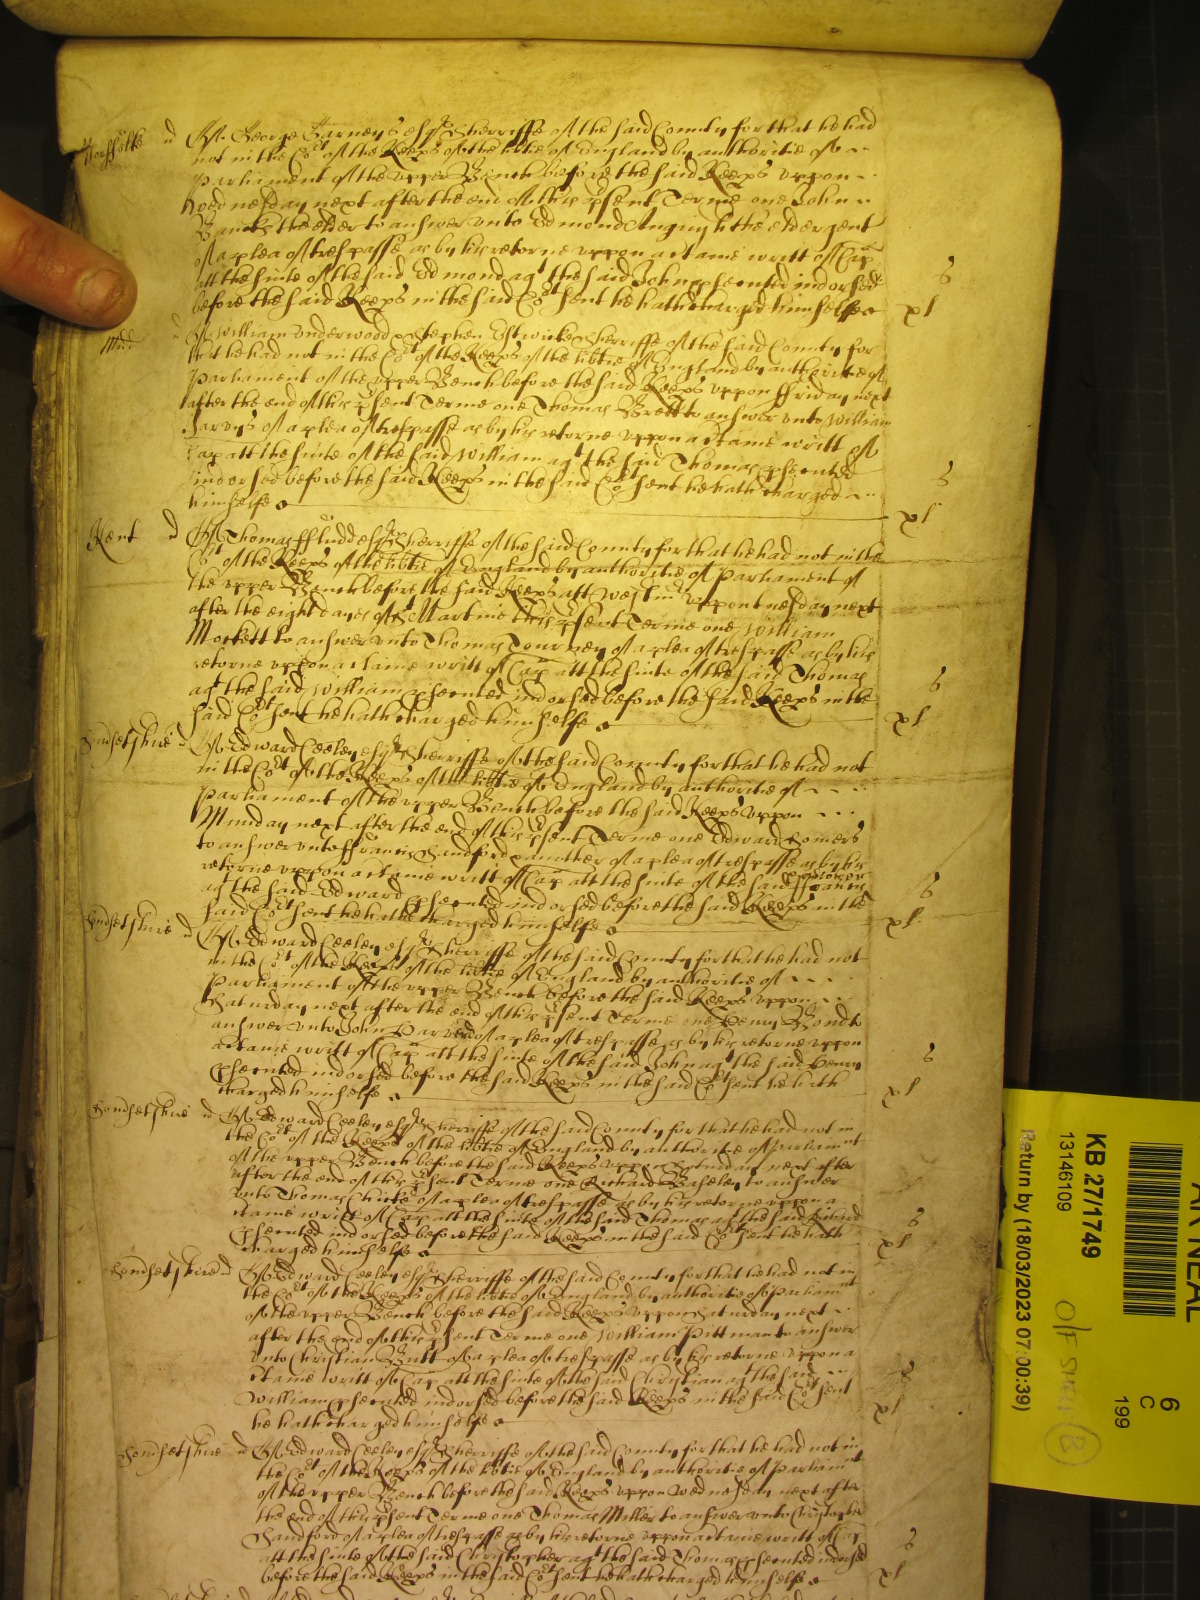 Norffolke Of George Barneys esqr Sherriffe of the said County for that he had
not in the Cort of the Keeps of the libtie of England by authoritie of
Parliament of the upper Bench before the said Keeps uppon
wednesday next after the end of this psent Terme one John
Bancks the elder to answer unto Edmond Anguish the elder gent
of a plea of trespasse as by his retorne uppon a tame writt of Cap
att the suite of the said Edmond agt the said John psented indorsed
before the said Keeps in the said Cort sent he hath charged himselfe
s
xl
Midd Of William Underwood & Stephen Estwicke Sherriffe of the said County for
that he had not in the Cort of the Keeps of the libtie of England by authoritie of
Parliament of the upper Bench before the said Keeps uppon ffriday next
after the end of this psent Terme one Thomas Brett to answer unto William
Jarvys of a plea of trespasse as by his retorne uppon a tame writt of
Cap att the suite of the said William agt the said Thomas psented
indorsed before the said Keeps in the said Cort sent he hath charged
himselfe
s
xl
Kent Of Thomas ffludd esqr Sherriffe of the said County for that he had not in the
Cort of the Keeps of the libtie of England by authoritie of Parliament of
the upper Bench before the said Keeps att Westm uppon wednesday next
after the eight dayes of St Martin this psent Terme one William
Mockett to answer unto Thomas Tourney of a plea of trespasse as by his
retorne uppon a tame writt of Cap att the suite of the said Thomas
agt the said William psented indorsed before the said Keeps in the
said Cort sent he hath charged himselfe
s
xl
Somsetshire Of Edward Ceeley esqr Sherriffe of the said County for that he had not
in the Cort of the Keeps of the libtie of England by authoritie of
Parliament of the upper Bench before the said Keeps uppon
Munday next after the end of this psent Terme one Edward Somers
to answer unto ffrancis Sandford & another of a plea of trespasse as by his
retorne uppon a tame writt of Cap att the suite of the said ffrancis
agt the said Edward psented indorsed before the said Keeps in the
said Cort sent he hath charged himselfe
s
xl
Somsetshire Of Edward Ceeley esqr Sherriffe of the said County for that he had not
in the Cort of the Keeps of the libtie of England by authoritie of
Parliament of the upper Bench before the said Keeps uppon
Saturday next after the end of this psent Terme one Henry Bond to
answer unto John of a plea of trespasse as by his retorne uppon
a tame writt of Cap att the suite of the said John agt the said Henry
psented indorsed before the said Keeps in the said Cort sent he hath
charged himselfe
s
xl
Somsetshire Of Edward Ceeley esqr Sherriffe of the said County for that he had not in
the Cort of the Keeps of the libtie of England by authoritie of Parliamt
of the upper Bench before the said Keeps uppon next after
after the end of this psent Terme one Richard to answer
unto Thomas of a plea of trespasse as by his retorne uppon a
tame writt of Cap att the suite of the said Thomas agt the said Richard
psented indorsed before the said Keeps in the said Cort sent he hath
charged himselfe
s
xl
Somsetshire Of Edward Ceeley esqr Sherriffe of the said County for that he had not in
the Cort of the Keeps of the libtie of England by authoritie of Parliamt
of the upper Bench before the said Keeps uppon Saturday next
after the end of this psent Terme one William Pittman to answer
unto Christian Butt of a plea of trespasse as by his retorne uppon a
tame writt of Cap att the suite of the said Christian agt the said
William psented indorsed before the said Keeps in the said Cort sent
he hath charged himselfe
s
xl
Somsetshire Of Edward Ceeley esqr Sherriffe of the said County for that he had not in
the Cort of the Keeps of the libtie of England by authoritie of Parliamt
of the upper Bench before the said Keeps uppon Wednesday next after
the end of this psent Terme one Thomas Miller to answer unto Christopher
Sandford of a plea of trespasse as by his retorne uppon a tame writt of Cap
att the suite of the said Christopher agt the said Thomas psented indorsed
before the said Keeps in the said Cort sent he hath charged himselfe
s
xl
KB 27/1749
13146109
Return by (18/03/2023 07:00:39)
6
C
199